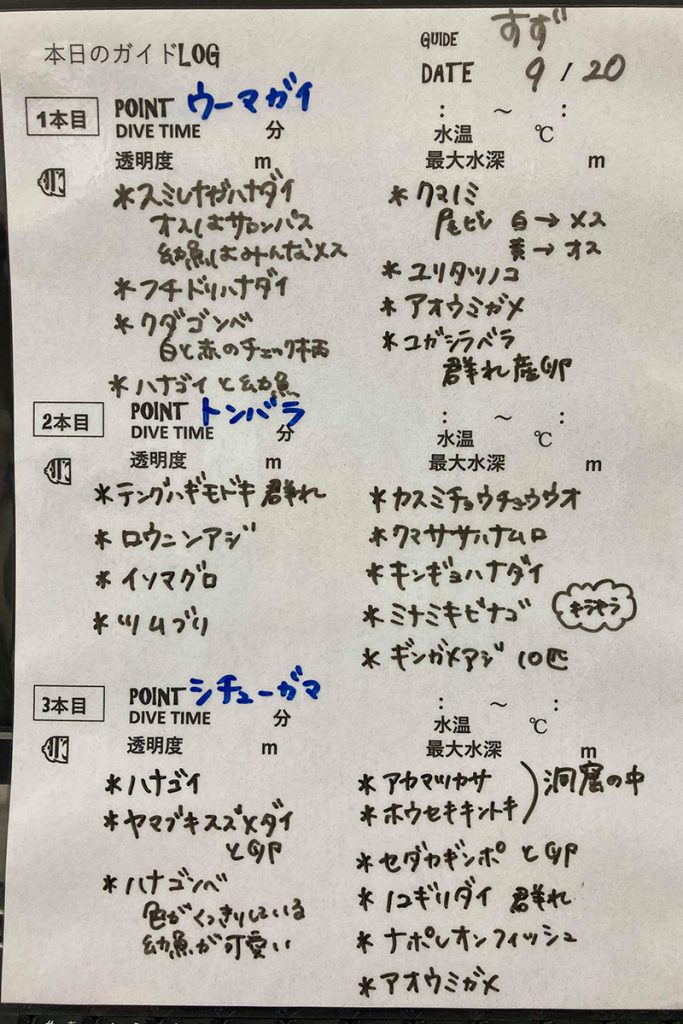 本日のガイドLOG
GUIDE すず
DATE 9 / 20
1本目 POINT ウーマガイ
DIVE TIME 分 : ～ :
水温 ℃
透明度 m 最大水深 m
*スミレナガハナダイ
オスはサロンパス
幼魚はみんなメス
*フチドリハナダイ
*クダゴンベ
白と赤のチェック柄
*ハナゴイと幼魚
*クマノミ
尾ビレ 白→メス
黄→オス
*ユリタツノコ
*アオウミガメ
*ユガシラベラ
群れ産卵
2本目 POINT トンバラ
DIVE TIME 分 : ～ :
水温 ℃
透明度 m 最大水深 m
*テングハギモドキ 群れ
*ロウニンアジ
*イソマグロ
*ツムブリ
*カスミチョウチョウウオ
*クマササハナムロ
*キンギョハナダイ
*ミナミキビナゴ キラキラ
*ギンガメアジ 10匹
3本目 POINT シチューガマ
DIVE TIME 分 : ～ :
水温 ℃
透明度 m 最大水深 m
*ハナゴイ
*ヤマブキスズメダイ
と卵
*ハナゴンベ
色がくっきりしている
幼魚が可愛い
*アカマツカサ
*ホウセキキントキ
洞窟の中
*セダカギンポと卵
*ノコギリダイ 群れ
*ナポレオンフィッシュ
*アオウミガメ